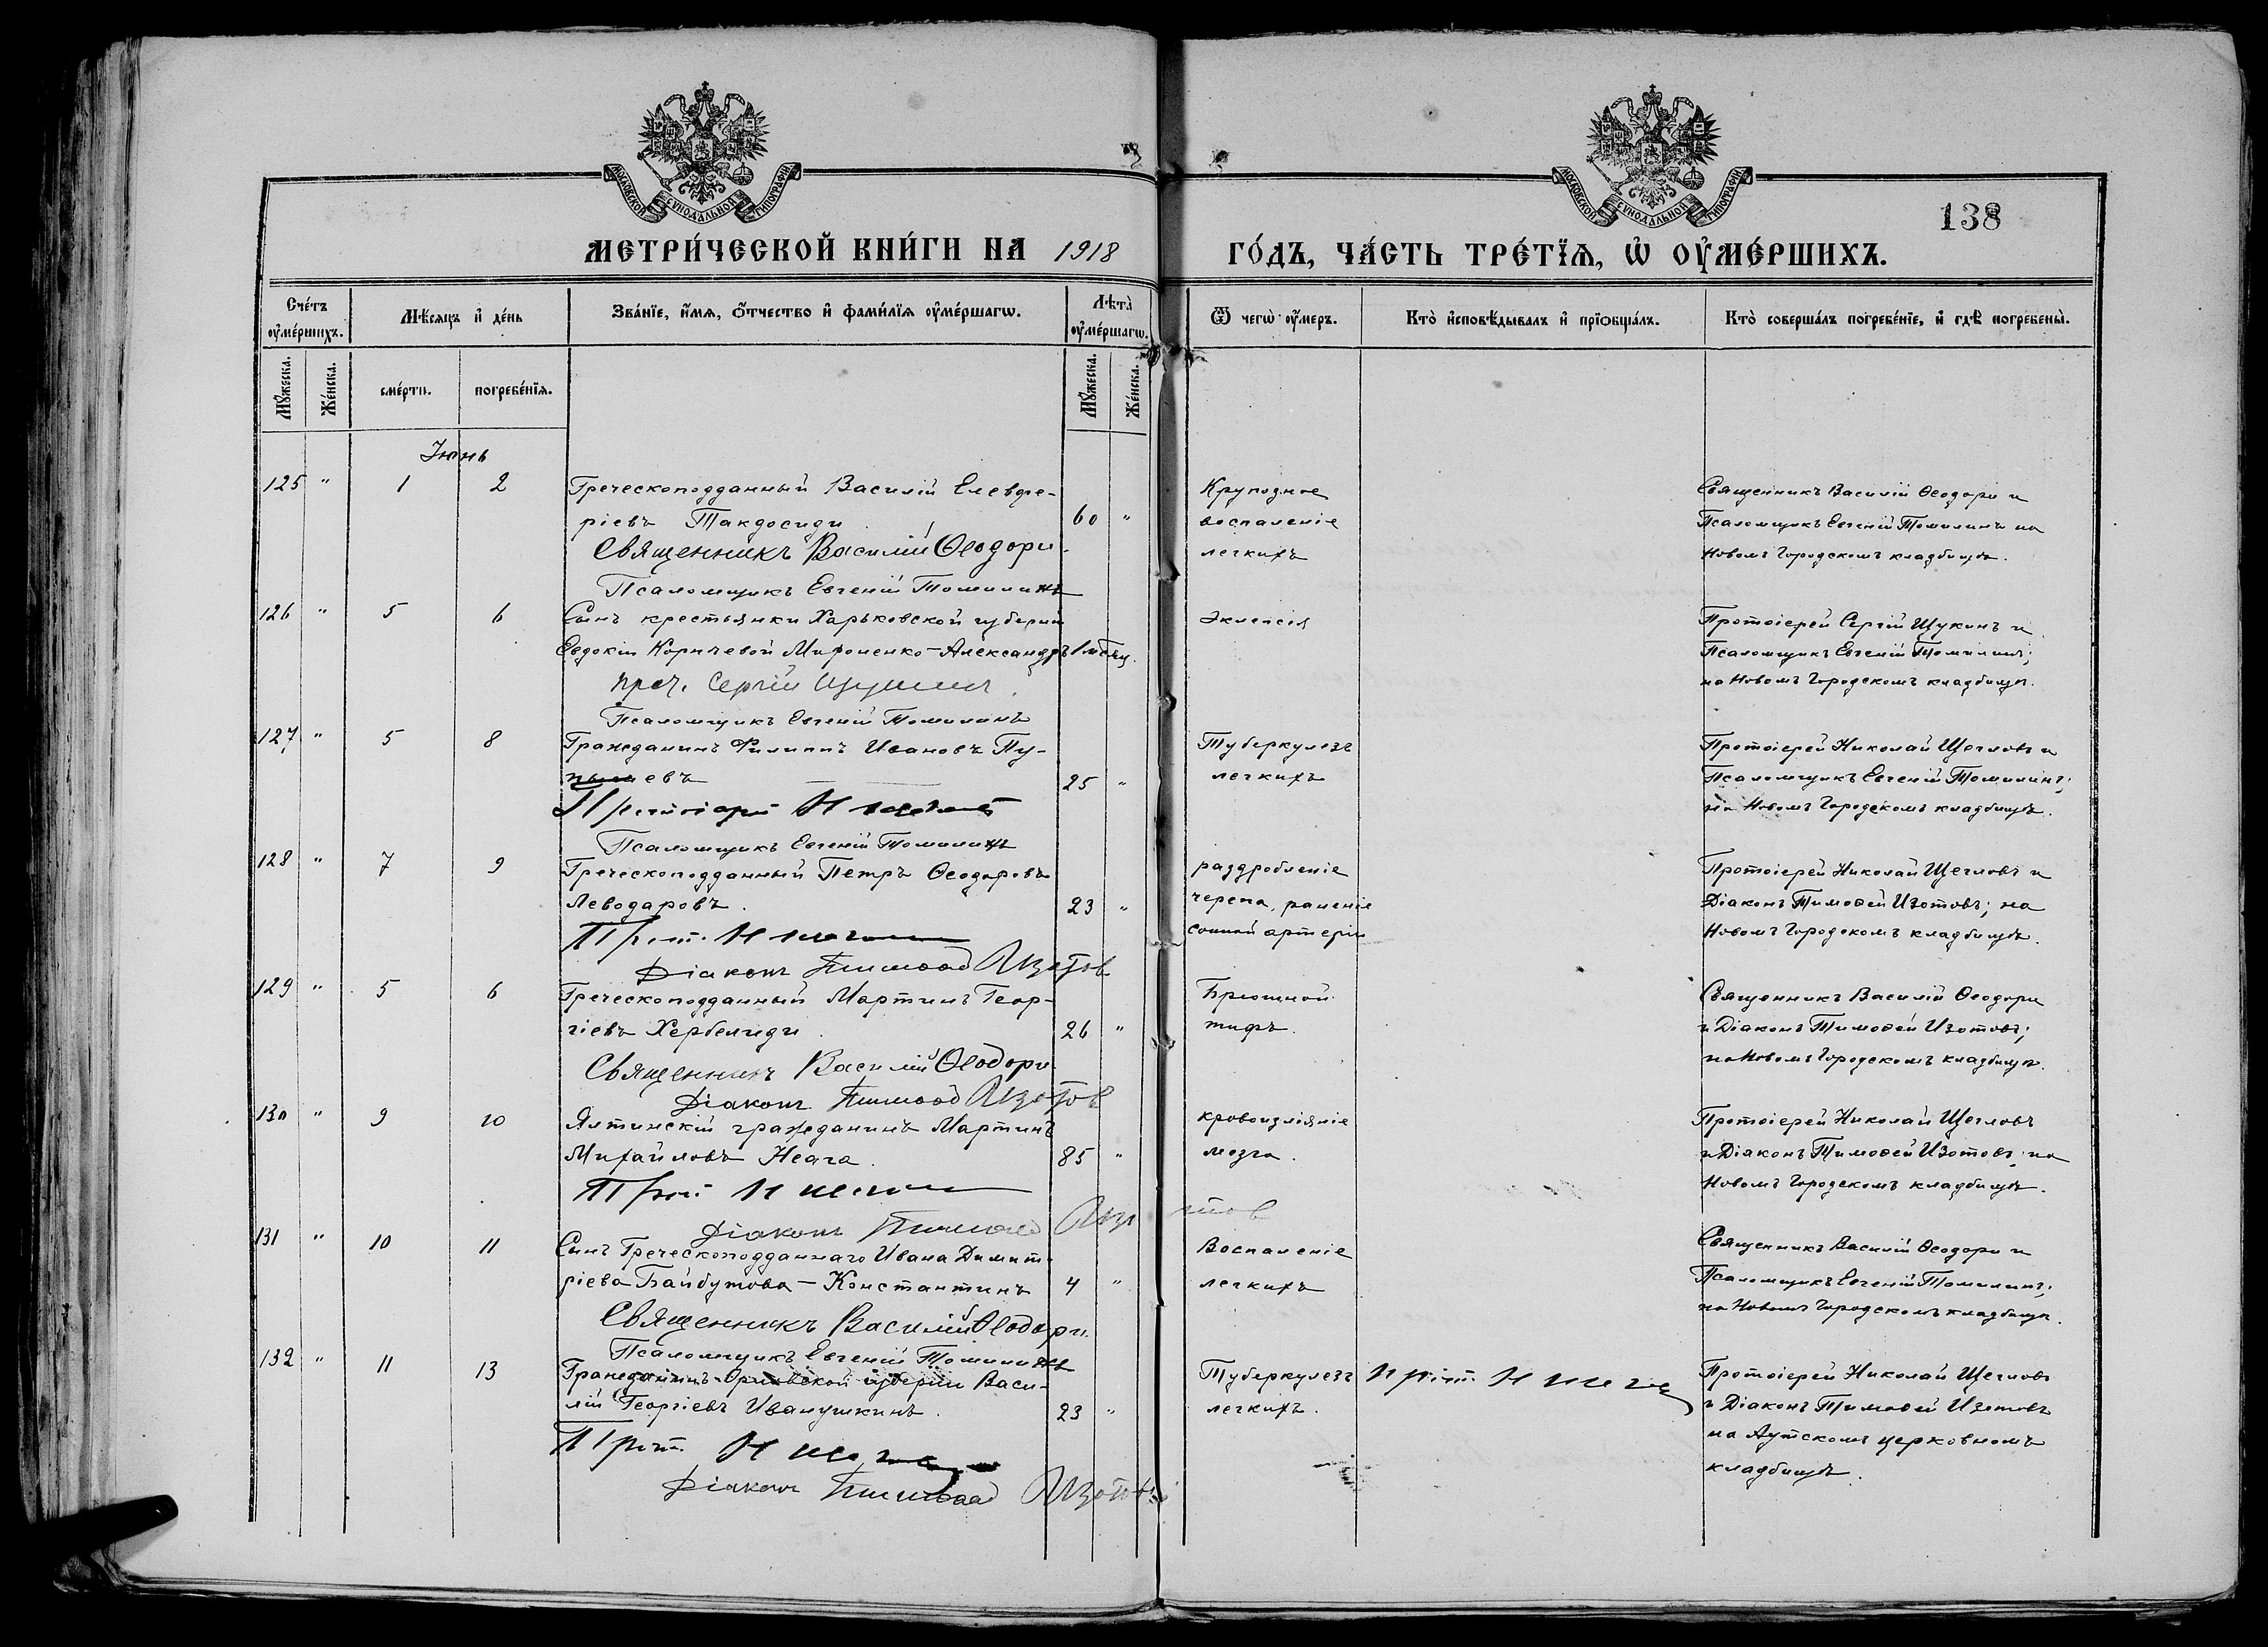 МОСКОВСКОЙ СѴНОДАЛЬНОЙ ТИПОГРАФІИ
МОСКОВСКОЙ СѴНОДАЛЬНОЙ ТИПОГРАФІИ
138
МЕТРИ́ЧЕСКОЙ КНИ́ГИ НА 1918 ГО́ДЪ, ЧА́СТЬ ТРЕ́ТЇѦ, Ѡ҆ ОУ҆МЕ́РШИХЪ.
Сче́тъ оу҆ме́ршихъ.
Мѣ́сяцъ и҆ де́нь
Зва́нїе, и҆́мя, ѻ҆́тчество и҆ фами́лїя оу҆ме́ршагѡ.
Лѣ́та оу҆ме́ршагѡ.
Ѿ чегѡ̀ оу҆́меръ.
Кто̀ и҆сповѣ́дывалъ и҆ прїѡбща́лъ.
Кто̀ соверша́лъ погребе́нїе, и҆ гдѣ̀ погребены̀.
Мꙋ́жеска.
Же́нска.
сме́рти.
погребе́нїя.
Мꙋ́жеска.
Же́нска.
Іюнь
125 " 1 2 Греческоподданный Василій Елевфе-
ріевъ Такдосиди 60 "
Священникъ Василій Ѳеодори
Псаломщикъ Евгеній Томилинъ
Крупозное
воспаленіе
легкихъ
Священникъ Василій Ѳеодори и
Псаломщикъ Евгеній Томилинъ на
Новомъ Городскомъ кладбищѣ.
126 " 5 6 Сынъ крестьянки Харьковской губерніи
Евдокіи Корнѣевой Мироненко - Александръ 1 мѣсяц.
прот. Сергій Щукинъ
Псаломщикъ Евгеній Томилинъ
Эклепсія
Протоіерей Сергій Щукинъ и
Псаломщикъ Евгеній Томилинъ;
на Новомъ Городскомъ кладбищѣ.
127 " 5 8 Гражданинъ Филиппъ Ивановъ Пу-
евъ 25 "
Протоіерей Н
Псаломщикъ Евгеній Томилинъ
Туберкулезъ
легкихъ
Протоіерей Николай Щегловъ и
Псаломщикъ Евгеній Томилинъ;
на Новомъ Городскомъ кладбищѣ.
128 " 7 9 Греческоподданный Петръ Ѳеодоровъ
Леводаровъ. 23 "
Прот. Н
Діаконъ Тимоѳей Изотов
раздробленіе
черепа, раненіе
сонной артеріи
Протоіерей Николай Щегловъ и
Діаконъ Тимоѳей Изотовъ; на
Новомъ Городскомъ кладбищѣ.
129 " 5 6 Греческоподданный Мартинъ Геор-
гіевъ Хербелиди. 26 "
Священникъ Василій Ѳеодори
Діаконъ Тимоѳей Изотов
Брюшной
тифъ.
Священникъ Василій Ѳеодори
и Діаконъ Тимоѳей Изотовъ;
на Новомъ Городскомъ кладбищѣ.
130 " 9 10 Ялтинскій гражданинъ Мартинъ
Михайловъ Неага. 85 "
Прот. Н
Діаконъ Тимоѳей Изотов
кровоизліяніе
мозга.
Протоіерей Николай Щегловъ
и Діаконъ Тимоѳей Изотовъ; на
Новомъ Городскомъ кладбищѣ.
131 " 10 11 Сынъ Греческоподданнаго Ивана Димит-
ріева Байбутова - Константинъ 4 "
Священникъ Василій Ѳеодори
Псаломщикъ Евгеній Томилинъ
Воспаленіе
легкихъ
Священникъ Василій Ѳеодори и
Псаломщикъ Евгеній Томилинъ;
на Новомъ Городскомъ кладбищѣ.
132 " 11 13 Гражданинъ Орловской губерніи Васи-
лій Георгіевъ Иванушкинъ. 23 "
Прот. Н
Діаконъ Тимоѳей Изотовъ
Туберкулезъ
легкихъ.
Прот. Н
Протоіерей Николай Щегловъ
и Діаконъ Тимоѳей Изотовъ
на Аутскомъ церковномъ
кладбищѣ.